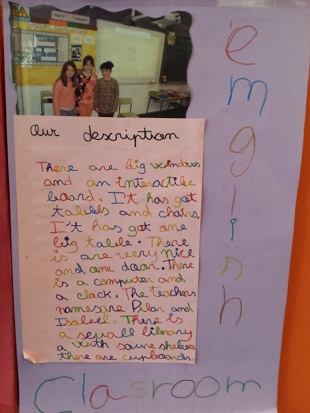 our description
There are big windows
and an interactibe
board. It has got
tables and chairs.
It's has got one
big table. There
is are very nice
and one door. There
is a computer and
a clack. The teachers
names are Pilar and
Isabel. There is
a small library
a with some shelves
there are cupboards.
english
Clasroom